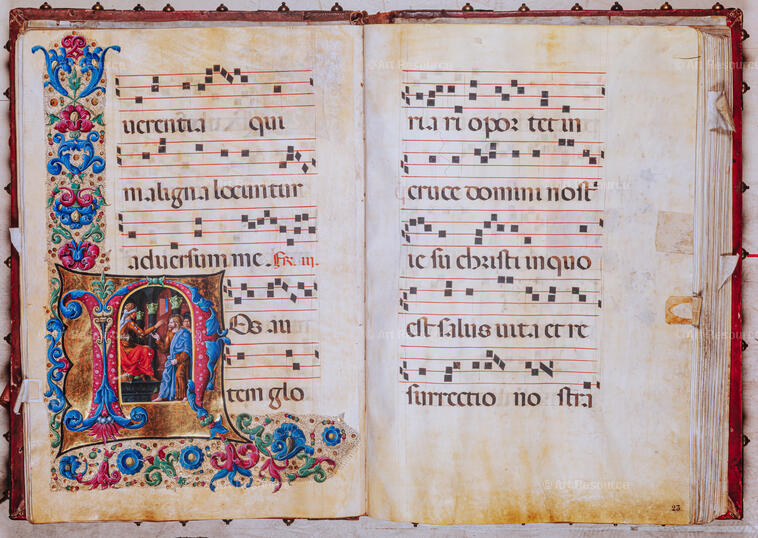 uerentia qui
maligna locuntur
aduersum me. Fr. iii.
NOs au
tem glo
ria ri opor tet in
cruce domini nost
ie su christi in quo
est salus uita et re
surrectio no stra
23
© Art Resource